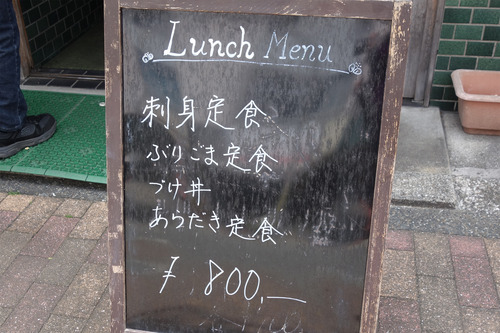 Lunch Menu
刺身定食
ぶりごま定食
づけ丼
あらだき定食
¥800,—